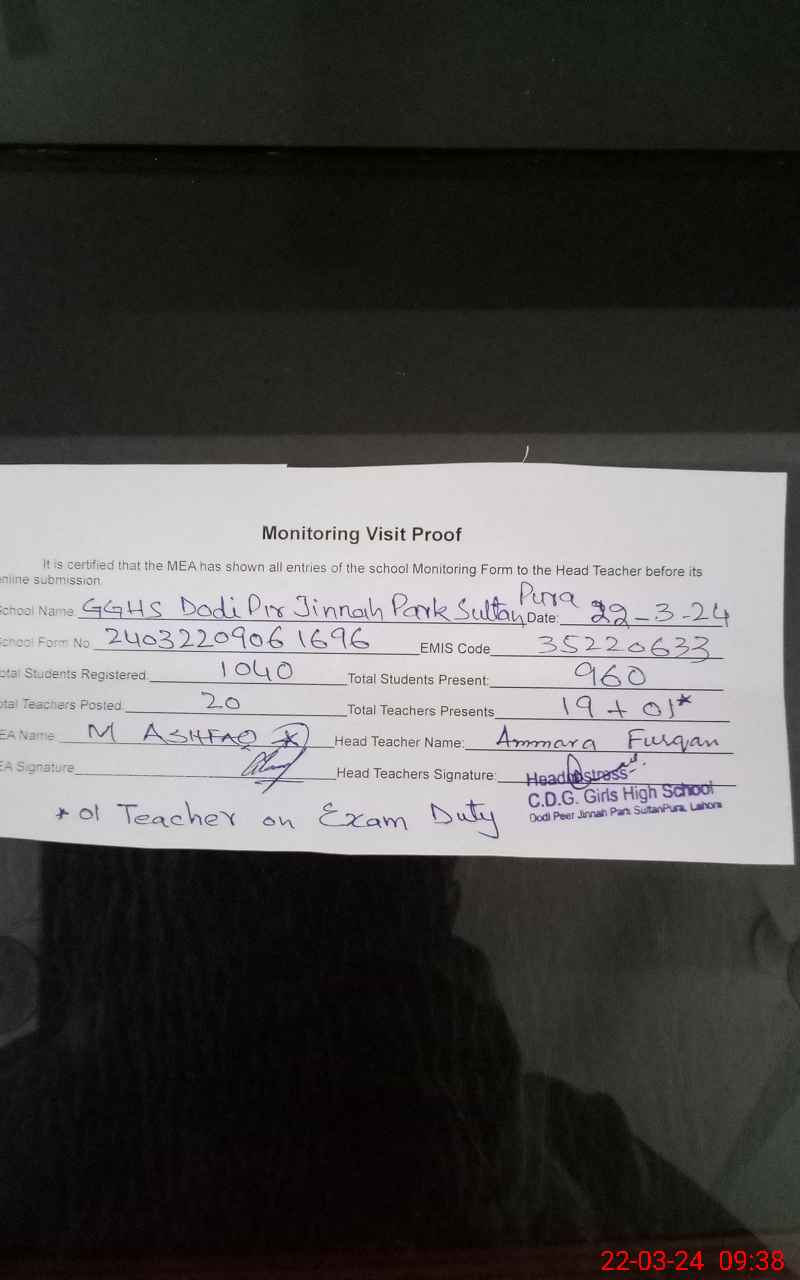 Monitoring Visit Proof
It is certified that the MEA has shown all entries of the school Monitoring Form to the Head Teacher before its
nline submission.
chool Name GGHS Dodi Pir Jinnah Park Sultan Pura Date: 22-3-24
chool Form No 24032209061696 EMIS Code 35220633
otal Students Registered: 1040 Total Students Present: 960
otal Teachers Posted: 20 Total Teachers Presents 19 + 01*
EA Name: M ASHFAQ Head Teacher Name: Ammara Furqan
EA Signature Head Teachers Signature:
Headmistress
C.D.G. Girls High School
Dodi Peer Jinnah Park SultanPura, Lahore
* 01 Teacher on Exam Duty
22-03-24 09:38